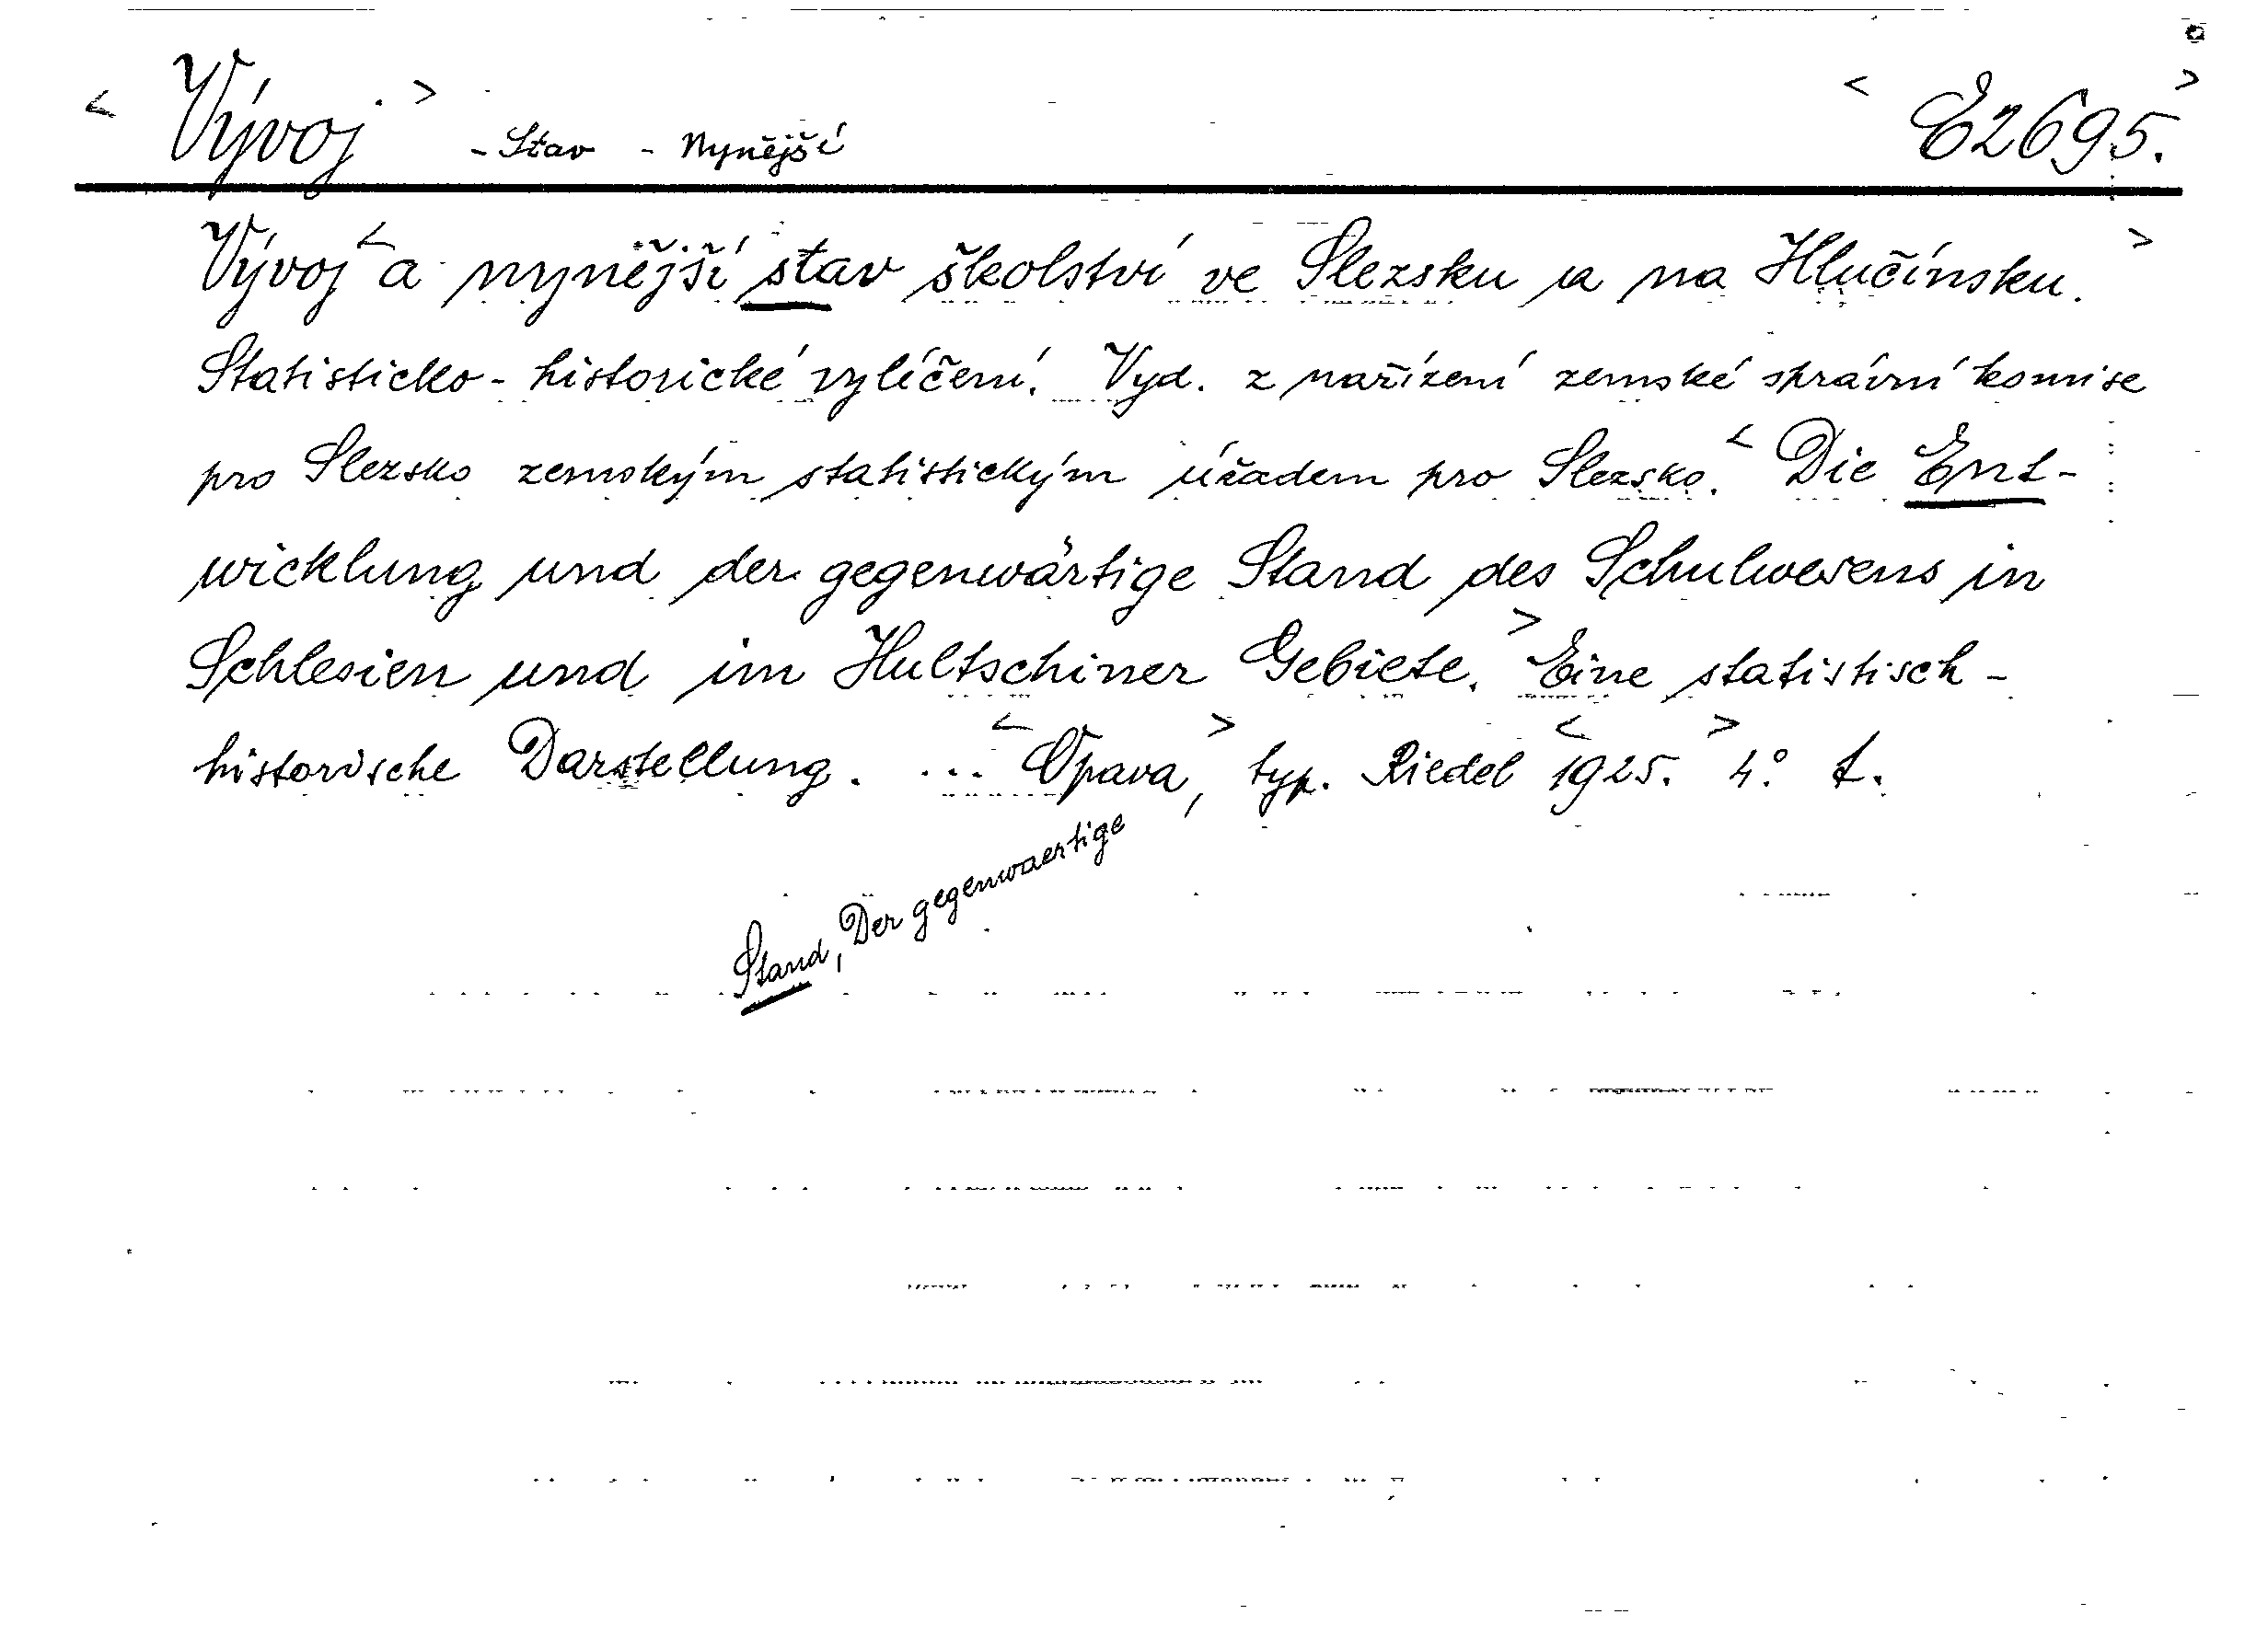 < Vývoj. > - Stav - Nynější < E2695. >
Vývoj < a nynější stav školství ve Slezsku a na Hlučínsku. >
Statisticko - historické vylíčení. Vyd. z nařízení zemské správní komise
pro Slezsko zemským statistickým úřadem pro Slezsko. < Die Ent-
wicklung und der gegenwärtige Stand des Schulwesens in
Schlesien und im Hultschiner Gebiete. > Eine statistisch -
historische Darstellung. ... < Opava, > typ. Riedel < 1925. > 4°. t.
Stand, Der gegenwaertige